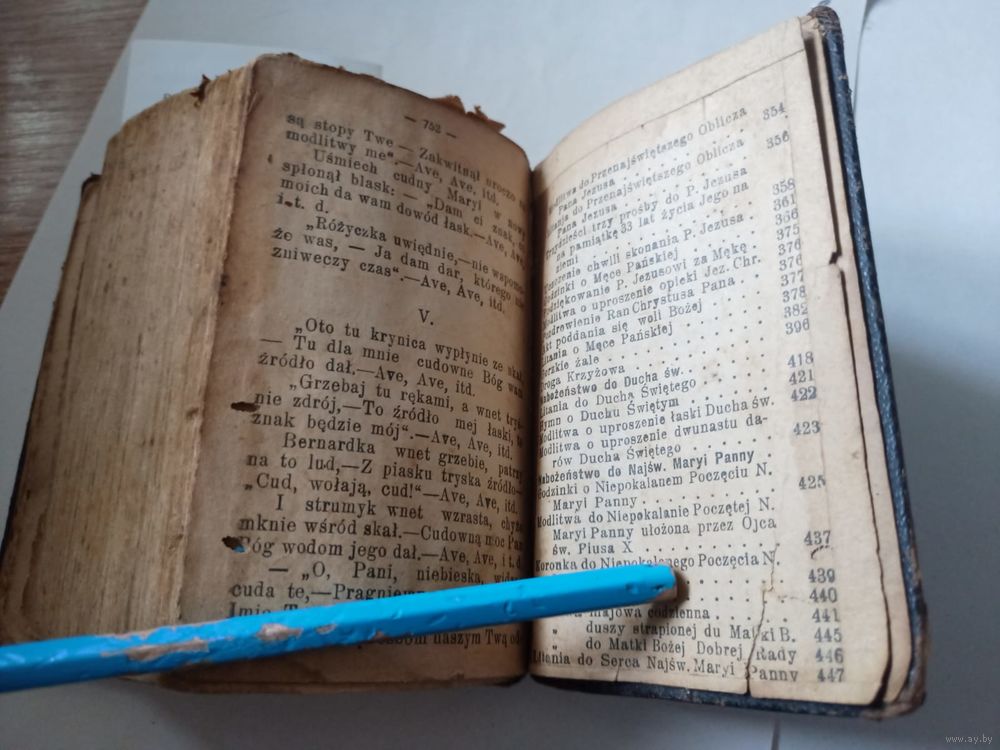 — 752 —
są stopy Twe — Zakwitnął
modlitwy me".—Ave, Ave, itd.
Uśmiech cudny Maryi w
spłonął blask: — „Dam ci znak,
moich da wam dowód łask.—Ave, Ave,
i t. d.
„Różyczka uwiędnie,—nie
że was, — Ja dam dar, którego nie
zniweczy czas".—Ave, Ave, itd.
V.
„Oto tu krynica wypłynie ze skał
— Tu dla mnie cudowne Bóg wam
źródło dał.—Ave, Ave, itd.
„Grzebaj tu rękami, a wnet
nie zdrój,—To źródło mej łaski,
znak będzie mój".—Ave, Ave, itd.
Bernardka wnet grzebie, patrzy
na to lud,—Z piasku tryska źródło—
„Cud, wołają, cud!"—Ave, Ave, itd.
I strumyk wnet wzrasta,
mknie wśród skał.—Cudowną moc Pan
Bóg wodom jego dał.—Ave, Ave, i t. d.
— „O, Pani, niebieska,
cuda te,—
naszym Twą
do Przenajświętszego Oblicza
Pana Jezusa . . . 354
do Przenajświętszego Oblicza
Pana Jezusa . . . 356
trzy prośby do P. Jezusa
na pamiątkę 33 lat życia Jego na
ziemi . . . 358
chwili skonania P. Jezusa . 361
o Męce Pańskiej . . . 366
P. Jezusowi za Mękę . 375
Modlitwa o uproszenie opieki Jez. Chr. 376
Ran Chrystusa Pana . 376
poddania się woli Bożej . . 377
Litania o Męce Pańskiej . . . 378
żale . . . 382
Droga Krzyżowa . . . 396
Nabożeństwo do Ducha św.
Litania do Ducha Świętego . . . 418
Hymn o Duchu Świętym . . . 421
Modlitwa o uproszenie łaski Ducha św. 422
Modlitwa o uproszenie dwunastu da-
rów Ducha Świętego . . . 423
Nabożeństwo do Najśw. Maryi Panny
Godzinki o Niepokalanem Poczęciu N.
Maryi Panny . . . 425
Modlitwa do Niepokalanie Poczętej N.
Maryi Panny ułożona przez Ojca
św. Piusa X . . . 437
Koronka do Niepokalanego Poczęcia N.
439
440
majowa codzienna . . . 441
„ duszy strapionej du Matki B. 445
„ do Matki Bożej Dobrej Rady 446
Litania do Serca Najśw. Maryi Panny 447
www.ay.by